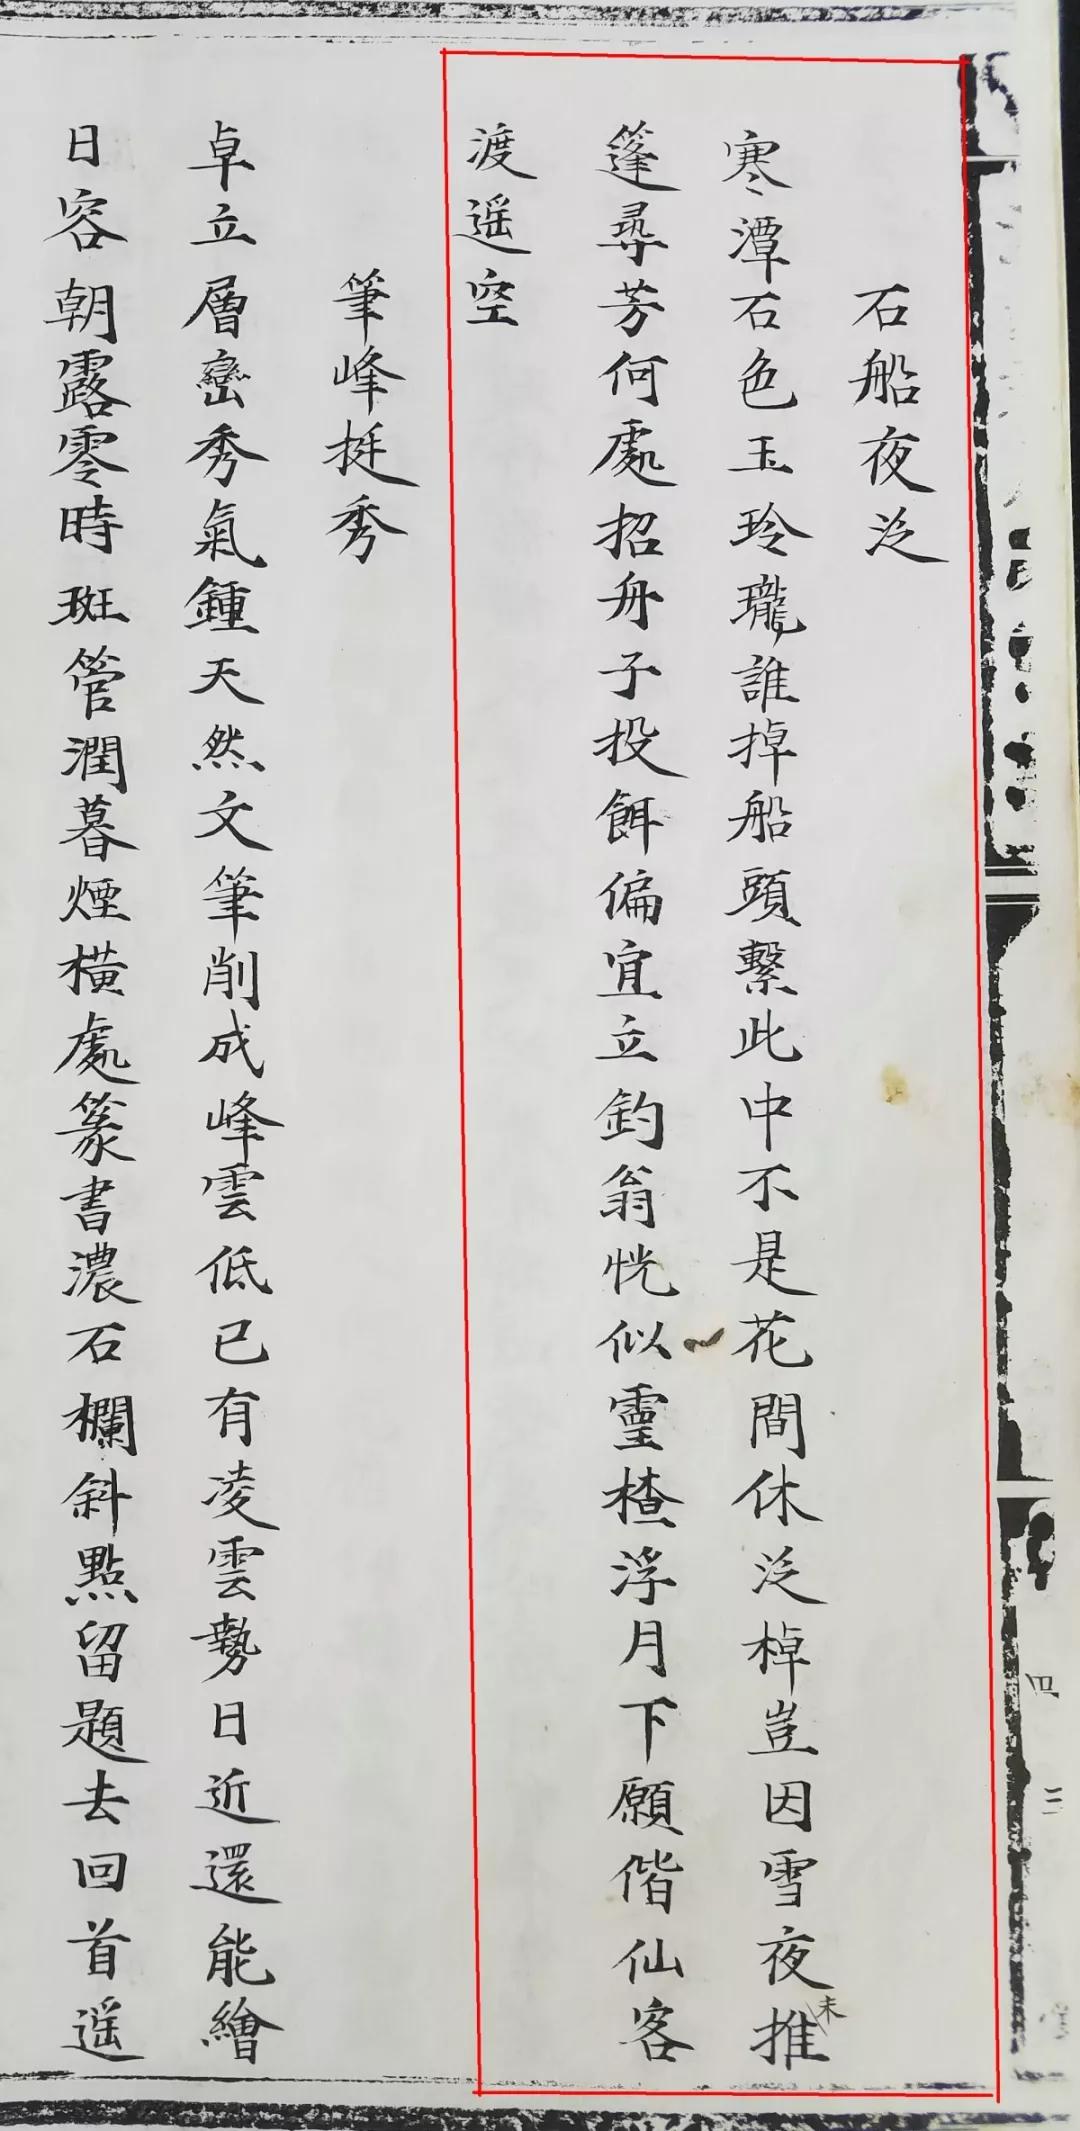 石船夜泛
寒潭石色玉玲瓏誰掉船頭繫此中不是花間休泛棹豈因雪夜推
未
篷尋芳何處招舟子投餌偏宜立釣翁恍似靈楂浮月下願偕仙客
渡遥空
筆峰挺秀
卓立層巒秀氣鍾天然文筆削成峰雲低已有凌雲勢日近還能繪
日容朝露零時斑管潤暮煙橫處篆書濃石欄斜點留題去回首遥
四
三